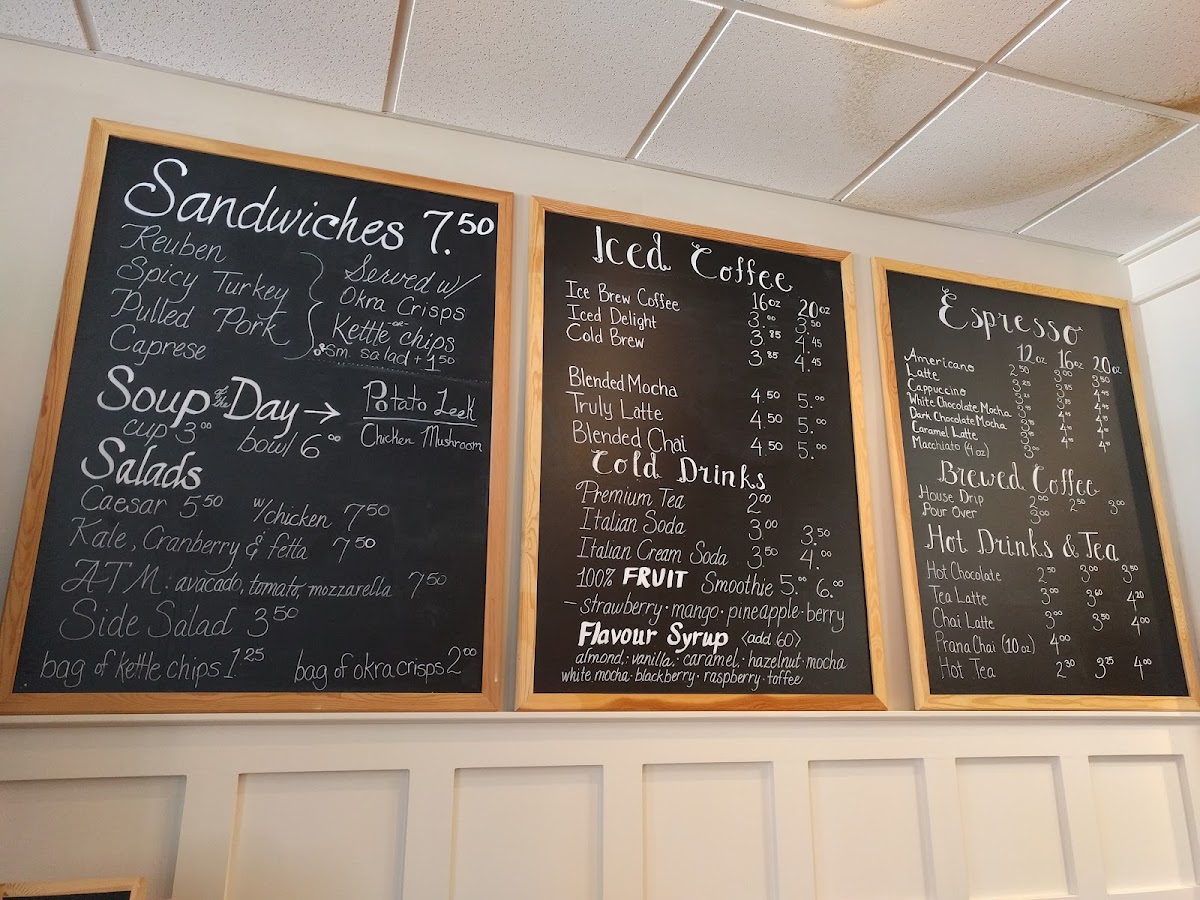 Sandwiches 7.50
Reuben
Spicy Turkey
Pulled Pork
Caprese
Served w/
Okra Crisps
-or-
Kettle chips
or sm. salad + 1.50
Soup of the Day →
cup 3.00 bowl 6.00
Potato Leek
Chicken Mushroom
Salads
Caesar 5.50 w/chicken 7.50
Kale, Cranberry & fetta 7.50
ATM: avacado, tomato, mozzarella 7.50
Side Salad 3.50
bag of kettle chips 1.25 bag of okra crisps 2.00
Iced Coffee
16oz 20oz
Ice Brew Coffee 3.00 3.50
Iced Delight 3.85 4.45
Cold Brew 3.85 4.45
Blended Mocha 4.50 5.00
Truly Latte 4.50 5.00
Blended Chai 4.50 5.00
Cold Drinks
Premium Tea 2.00
Italian Soda 3.00 3.50
Italian Cream Soda 3.50 4.00
100% FRUIT Smoothie 5.00 6.00
- strawberry · mango · pineapple · berry
Flavour Syrup <add 60>
almond · vanilla · caramel · hazelnut · mocha
white mocha · blackberry · raspberry · toffee
Espresso
12oz 16oz 20oz
Americano 2.50 3.00 3.50
Latte
Cappuccino
White Chocolate Mocha
Dark Chocolate Mocha
Caramel Latte
Macchiato (4oz)
Brewed Coffee
House Drip 2.00 2.50 3.00
Pour Over 3.00
Hot Drinks & Tea
Hot Chocolate 2.50 3.00 3.50
Tea Latte 3.00 3.60 4.20
Chai Latte 3.00 3.50 4.00
Prana Chai (10oz) 4.00
Hot Tea 2.30 3.25 4.00